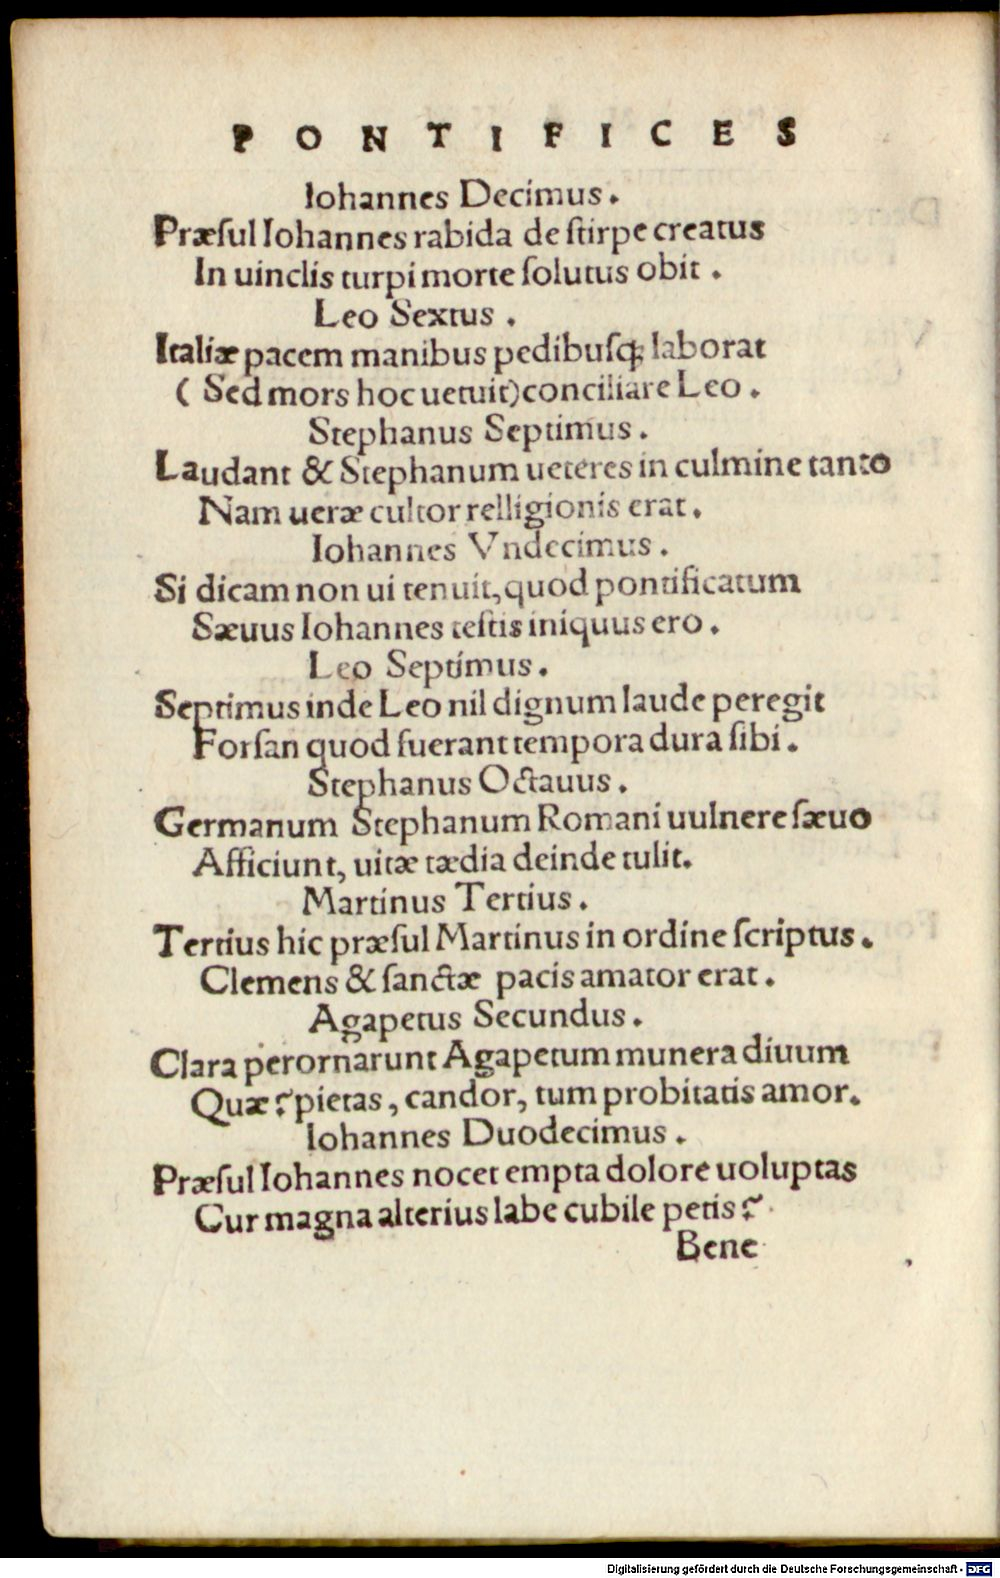 PONTIFICES
Iohannes Decimus.
Præſul Iohannes rabida de ſtirpe creatus
In uinclis turpi morte ſolutus obit.
Leo Sextus.
Italiæ pacem manibus pedibuſq; laborat
( Sed mors hoc uetuit) conciliare Leo.
Stephanus Septimus.
Laudant & Stephanum ueteres in culmine tanto
Nam ueræ cultor relligionis erat.
Iohannes Vndecimus.
Si dicam non ui tenuit, quod pontificatum
Sæuus Iohannes teſtis iniquus ero.
Leo Septimus.
Septimus inde Leo nil dignum laude peregit
Forſan quod fuerant tempora dura ſibi.
Stephanus Octauus.
Germanum Stephanum Romani uulnere ſæuo
Afficiunt, uitæ tædia deinde tulit.
Martinus Tertius.
Tertius hic præſul Martinus in ordine ſcriptus.
Clemens & ſanctæ pacis amator erat.
Agapetus Secundus.
Clara perornarunt Agapetum munera diuum
Quæ? pietas, candor, tum probitatis amor.
Iohannes Duodecimus.
Præſul Iohannes nocet empta dolore uoluptas
Cur magna alterius labe cubile petis?
Bene
Digitalisierung gefördert durch die Deutsche Forschungsgemeinschaft - DFG